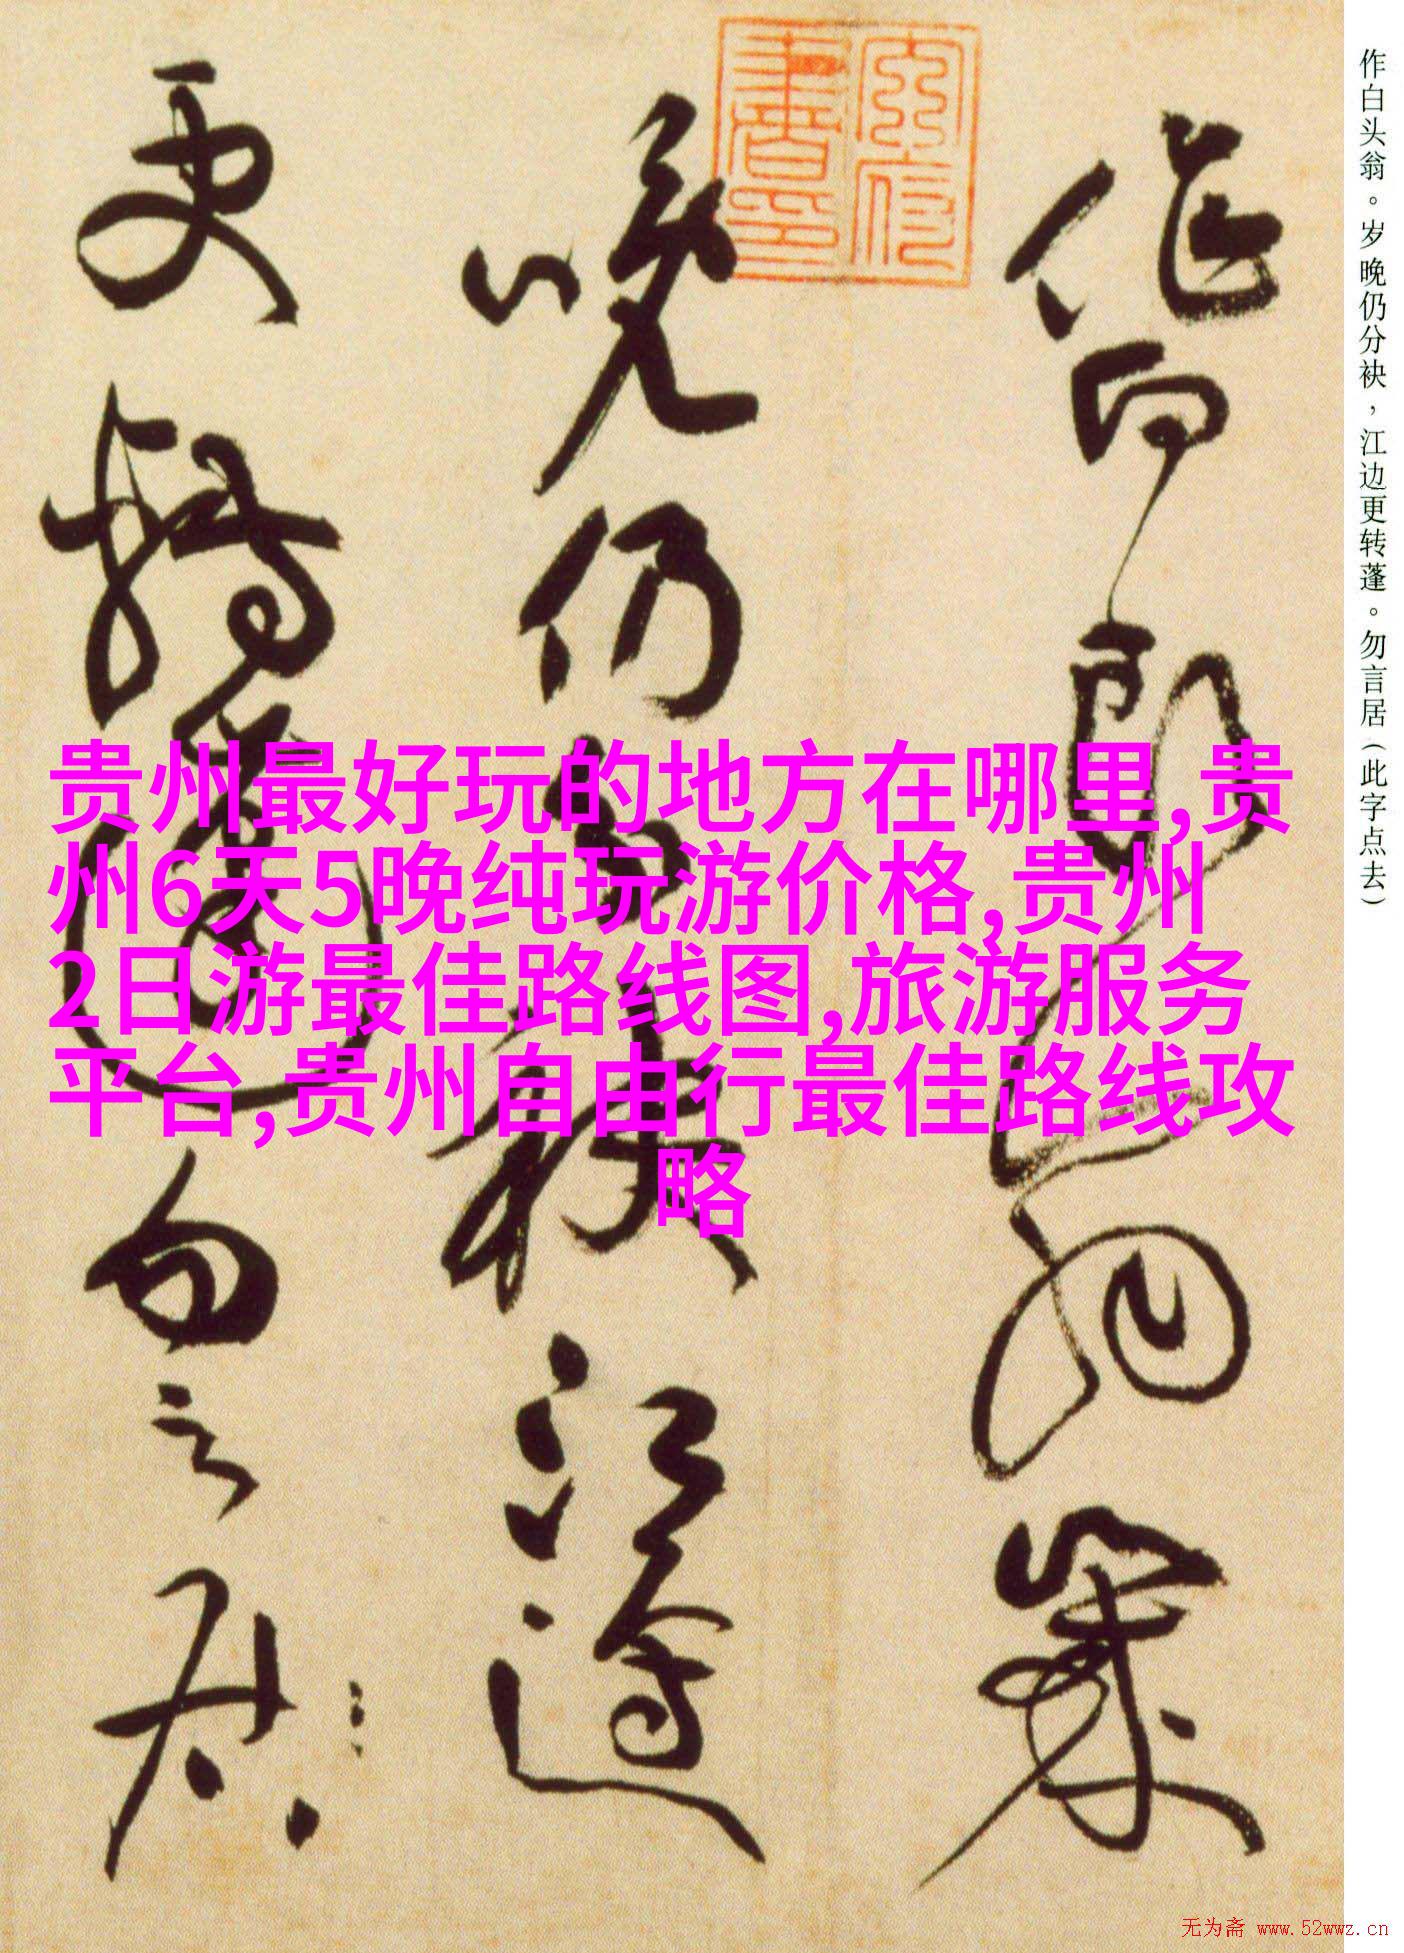 作白頭翁歲
晚仍分袂江邊
更轉蓬勿言居
作白头翁。岁晚仍分袂，江边更转蓬。勿言居(此字点去)
贵州最好玩的地方在哪里,贵
州6天5晚纯玩游价格,贵州
2日游最佳路线图,旅游服务
平台,贵州自由行最佳路线攻
略
无为斋 www.52wwz.cn